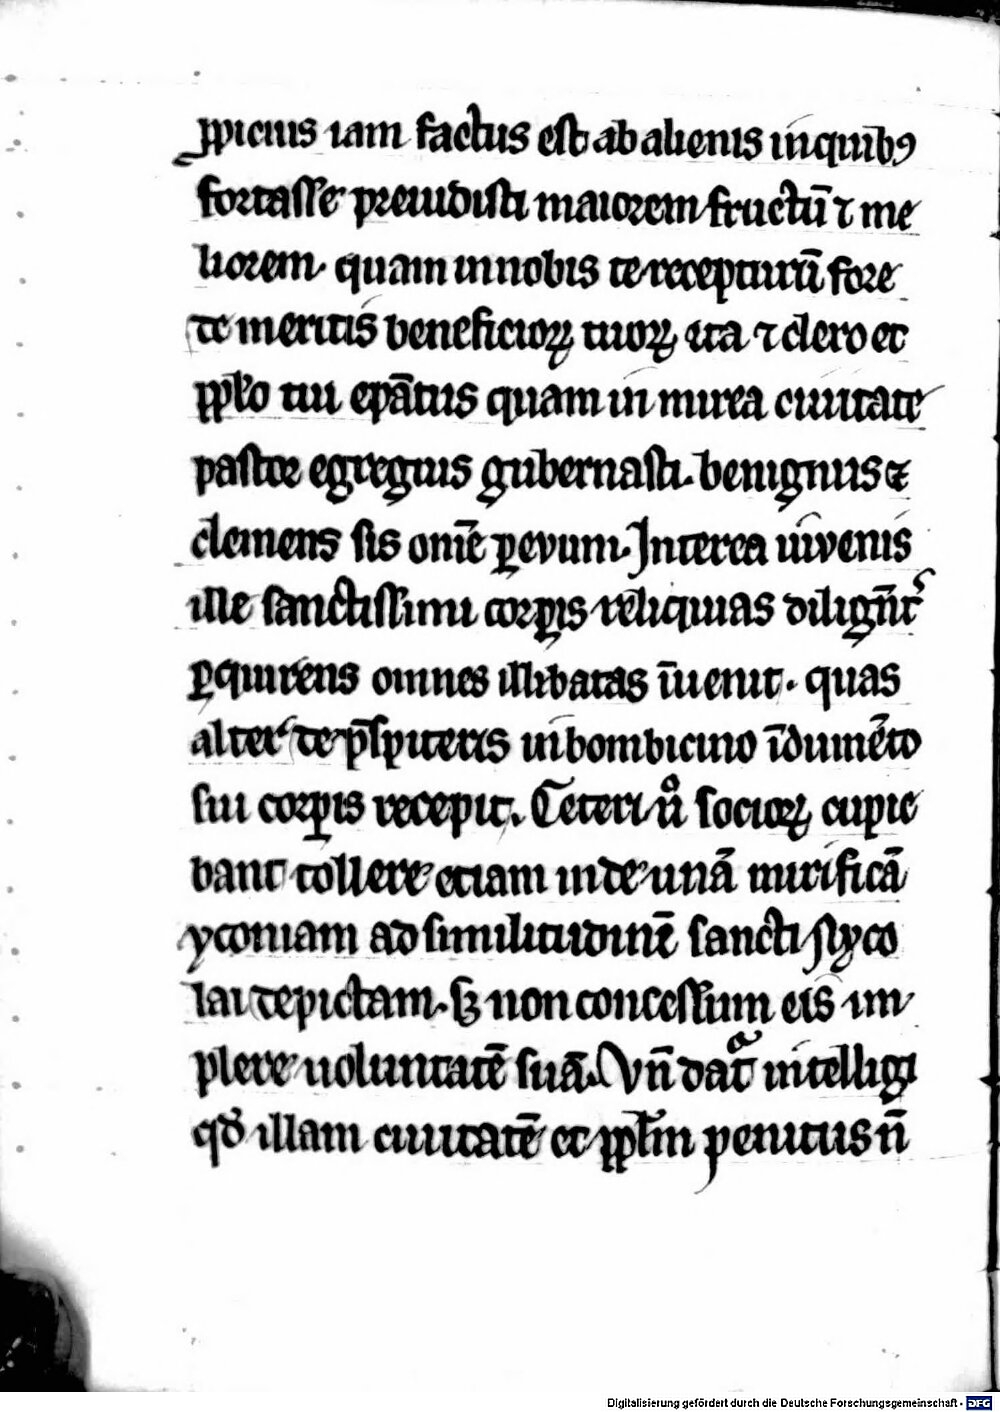 ꝓpicius iam factus est ab alienis in quibꝰ
fortasse preuidisti maiorem fructū ⁊ me
liorem. quam in nobis te recepturū fore
de meritis beneficioꝝ tuoꝝ ita ⁊ clero et
ppl̅o tui ep̄atus quam in mirea ciuitate
pastor egregius gubernasti. benignus ⁊
clemens sis om̄e ꝑ evum. Interea iuvenis
ille sanctissimi corꝑis reliquias diligent͛
ꝑquirens omnes illibatas īuenit. quas
alter de p̄sbiteris in bombicino īdumēto
sui corꝑis recepit. Ceteri ů socioꝝ cupie
bant tollere etiam inde unā mirificā
yconiam ad similitudinē sancti Nyco
lai depictam. sꝫ non concessum eis im
plere uoluntatē suā. Vn̄ datͣ intelligi
qđ illam ciuitatē et ppl̅m penitus n̄
Digitalisierung gefördert durch die Deutsche Forschungsgemeinschaft - DFG